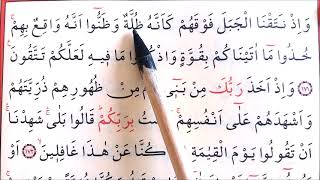 وَاِذْ نَتَقْنَا الْجَبَلَ فَوْقَهُمْ كَاَنَّهُ ظُلَّةٌ وَظَنُّٓوا اَنَّهُ وَاقِعٌ بِهِمْۚ
خُذُوا مَٓا اٰتَيْنَاكُمْ بِقُوَّةٍ وَاذْ مَا فِيهِ لَعَلَّكُمْ تَتَّقُونَ
﴿١٧١﴾ وَاِذْ اَخَذَ رَبُّكَ مِنْ بَنِٓي مِنْ ظُهُورِهِمْ ذُرِّيَّتَهُمْ
وَاَشْهَدَهُمْ عَلٰٓى اَنْفُسِهِمْۚ تُ بِرَبِّكُمْۜ قَالُوا بَلٰىۚ شَهِدْنَاۚ
اَنْ تَقُولُوا يَوْمَ الْقِيٰمَةِ كُنَّا عَنْ هٰذَا غَافِلِينَۙ ﴿١٧٢﴾ اَوْ